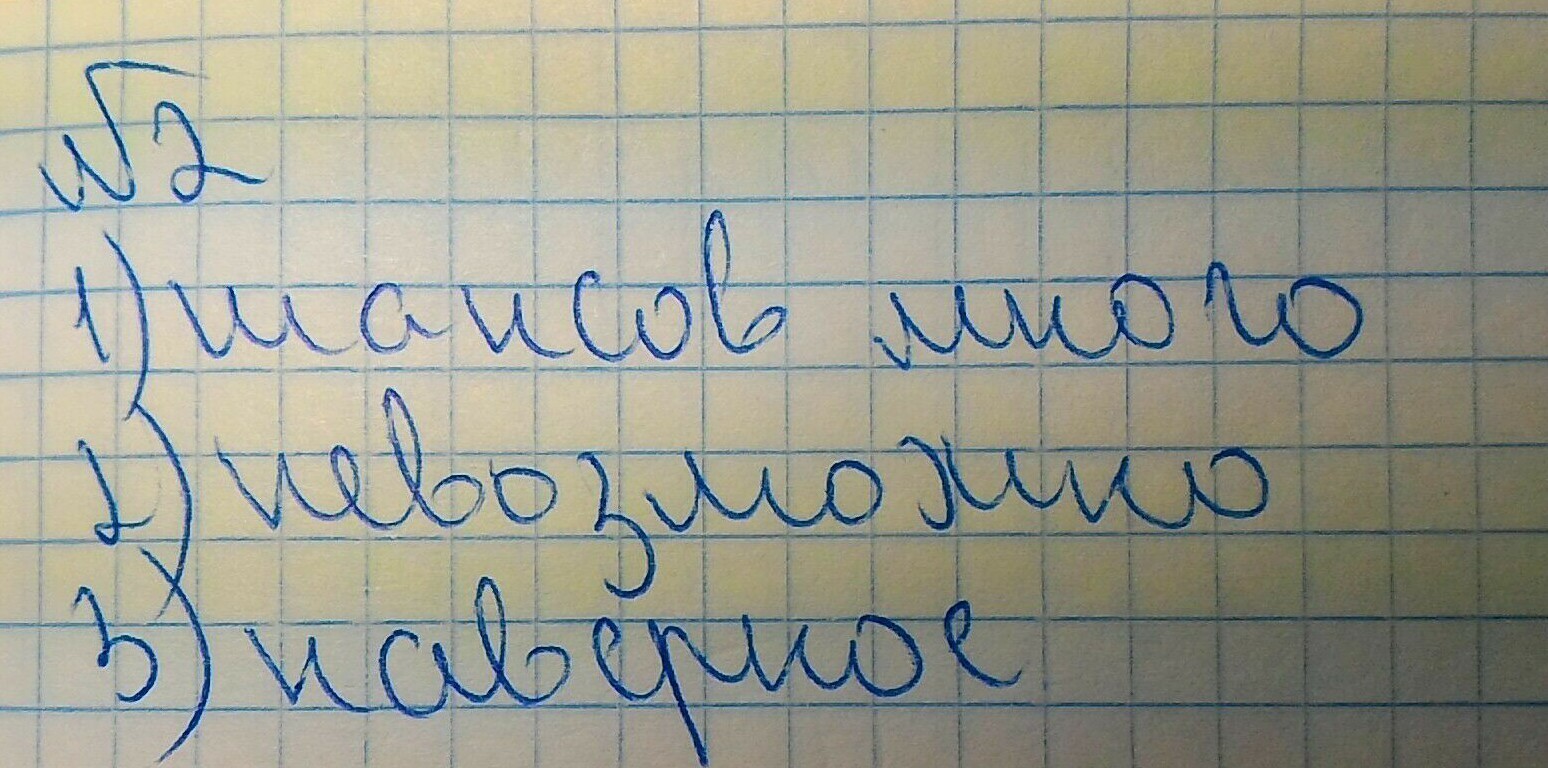 №2
1) шансов много
2) невозможно
3) наверное